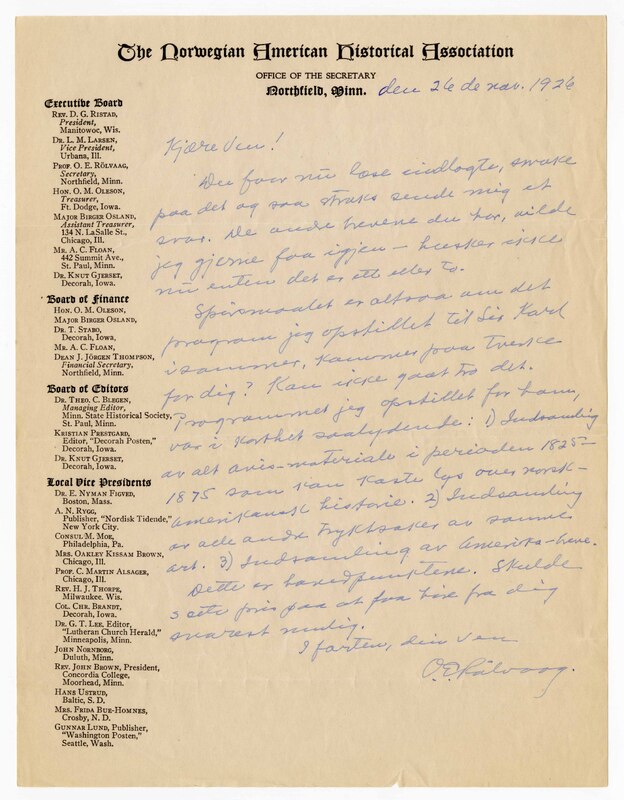 The Norwegian American Historical Association
OFFICE OF THE SECRETARY
Northfield, Minn.
den 26 de nov. 1926
Executive Board
REV. D. G. RISTAD,
President,
Manitowoc, Wis.
DR. L. M. LARSEN,
Vice President,
Urbana, Ill.
PROF. O. E. RÖLVAAG,
Secretary,
Northfield, Minn.
HON. O. M. OLESON,
Treasurer,
Ft. Dodge, Iowa.
MAJOR BIRGER OSLAND,
Assistant Treasurer,
134 N. LaSalle St.,
Chicago, Ill.
MR. A. C. FLOAN,
442 Summit Ave.,
St. Paul, Minn.
DR. KNUT GJERSET,
Decorah, Iowa.
Board of Finance
HON. O. M. OLESON,
MAJOR BIRGER OSLAND,
DR. T. STABO,
Decorah, Iowa.
MR. A. C. FLOAN,
DEAN J. JÖRGEN THOMPSON,
Financial Secretary,
Northfield, Minn.
Board of Editors
DR. THEO. C. BLEGEN,
Managing Editor,
Minn. State Historical Society,
St. Paul, Minn.
KRISTIAN PRESTGARD,
Editor, "Decorah Posten,"
Decorah, Iowa.
DR. KNUT GJERSET,
Decorah, Iowa.
Local Vice Presidents
DR. E. NYMAN FIGVED,
Boston, Mass.
A. N. RYGG,
Publisher, "Nordisk Tidende,"
New York City.
CONSUL M. MOE,
Philadelphia, Pa.
MRS. OAKLEY KISSAM BROWN,
Chicago, Ill.
PROF. C. MARTIN ALSAGER,
Chicago, Ill.
REV. H. J. THORPE,
Milwaukee. Wis.
COL. CHR. BRANDT,
Decorah, Iowa.
DR. G. T. LEE, Editor
"Lutheran Church Herald,"
Minneapolis, Minn.
JOHN NORNBORG,
Duluth, Minn.
REV. JOHN BROWN, President,
Concordia College,
Moorhead, Minn.
HANS USTRUD,
Baltic, S. D.
MRS. FRIDA BUE-HOMNES,
Crosby, N. D.
GUNNAR LUND, Publisher,
"Washington Posten,"
Seattle, Wash.
Kjære Ven!
Du faar nu læse indlagte, smake
paa det og saa straks sende mig et
svar. De andre brevene du har, vilde
jeg gjerne faa igjen — husker ikke
nu enten det er ett eller to.
Spørsmaalet er altsaa om det
program jeg opstillet til Sis Karl
i sommer, kommer paa tverke
for dig? Kan ikke gaat tro det.
Programmet jeg opstillet for ham,
var i korthet saalydende: 1) Indsamling
av alt avis-materiale i perioden 1825–
1875 som kan kaste lys over norsk-
amerikansk historie. 2) Indsamling
av alle andre tryksaker av samme
art. 3) Indsamling av Amerika-breve.
Dette er hovedpunktene. Skulde
sette pris paa at faa høre fra dig
snarest mulig.
I farten, din ven
O. E. Rölvaag.